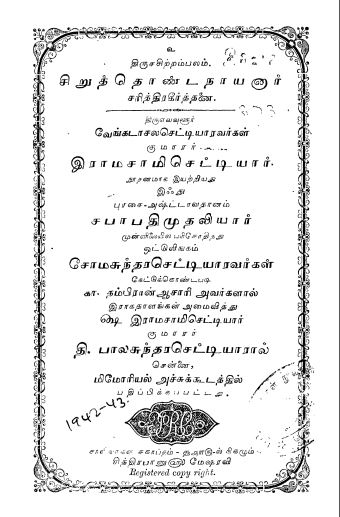 உ
திருச்சிற்றம்பலம்.
சிறுத்தொண்டநாயனார்
சரித்திரகீர்த்தனை.
திருஎவ்வளூர்
வேங்கடாசலசெட்டியாரவர்கள்
குமாரர்
இராமசாமிசெட்டியார்.
இயற்றியது
இஃது
புரசை-அஷ்டாவதானம்
சபாபதிமுதலியார்
முன்னிலையில் பரிசோதித்து
ஒட்டுலிங்கம்
சோமசுந்தரசெட்டியாரவர்கள்
கேட்டுக்கொண்டபடி
கா. நம்பிரான் ஆசாரி அவர்களால்
இராகதாளங்கள் அமைவித்து
ஷை இராமசாமிசெட்டியார்
குமாரர்
தி. பாலசுந்தரசெட்டியாரால்
சென்னை,
மிமோரியல் அச்சுக்கூடத்தில்
பதிப்பிக்கப்பட்டது.
1942-43.
சாலிவாகன சகாப்தம்
சித்திரபானு௵ மேஷரவி
Registered copy right.